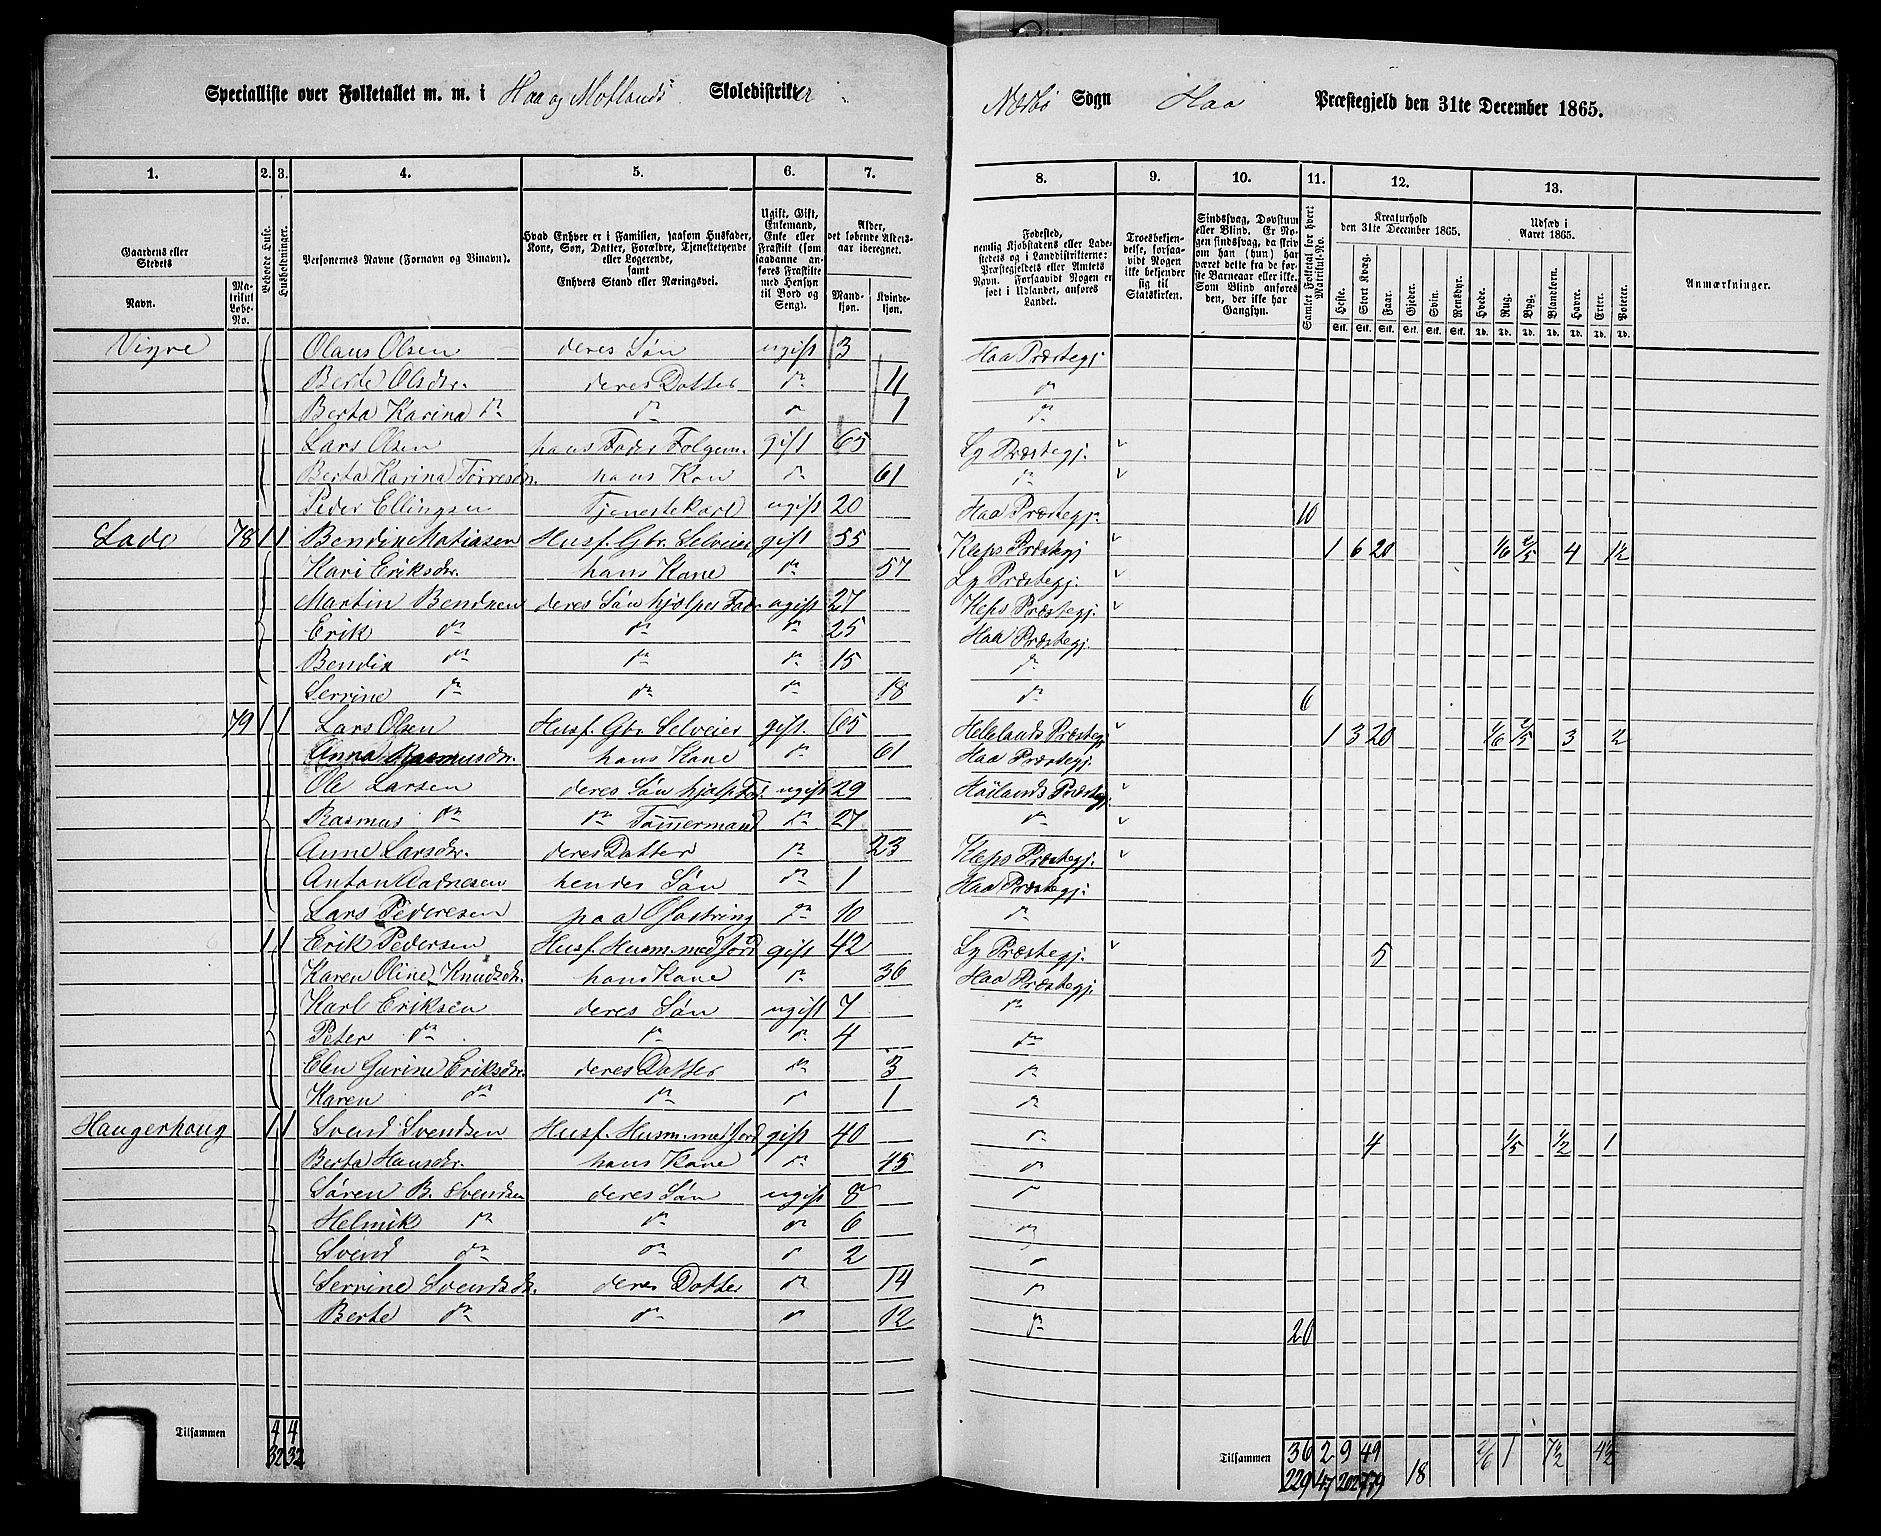 Specialliste over Folketallet m. m. i Haa og Motlands Skoledistrikter
Nærbø Sogn Haa Præstegjeld den 31te December 1865.
1. 2. 3. 4. 5. 6. 7.
8. 9. 10. 11. 12. 13.
Gaardens eller Stedets
Navn. Matrikul Løbe-No.
Beboede Huse.
Husholdninger.
Personernes Navne (Fornavn og Vinavn).
Hvad Enhver er i Familien, saasom Husfader, Kone, Søn, Datter, Forældre, Tjenestetyende eller Logerende, samt Enhvers Stand eller Næringsvei.
Ugift, Gift, Enkemand, Enke eller Fraskilt (som saadanne anføres Fraskilte med Hensyn til Bord og Seng).
Alder, det løbende Alders-aar iberegnet.
Mandkjøn. Kvindekjøn.
Fødested, nemlig Kjøbstadens eller Ladestedets og i Landdistrikterne: Præstegjeldets eller Amtets Navn. Forsaavidt Nogen er født i Udlandet, anføres Landet.
Troesbekjendelse, forsaavidt Nogen ikke bekjender sig til Statskirken.
Sindssvag, Døvstum eller Blind. Er Nogen sindssvag, da skriv om han (hun) har været dette fra de første Barneaar eller ikke. Som Blind anføres den, der ikke har Gangsyn.
Samlet Folketal for hvert Matrikul-No.
Kreaturhold den 31te December 1865.
Heste. Stort Kvæg. Faar. Gjeder. Svin. Rensdyr.
Udsæd i Aaret 1865.
Hvede. Rug. Byg. Blandkorn. Havre. Erter. Poteter.
Anmærkninger.
Vigre Olaus Olsen deres Søn ugift 3 Haa Præstegj
Berte Olsdr. deres Datter do 11 do
Berta Karina do do do 1 do
Lars Olsen hans Fader Folgem. gift 65 Ly Præstegj.
Berta Karina Torresdr. hans Kon do 61 do
Peder Ellingsen Tjenestekarl ugift 20 Haa Præstegj. 10
Lode 78 1 1 Bendix Matiasen Husf. Gbr. Selveier gift 55 Kleps Præstegj 1 6 20 1/6 2/5 4 1 1/2
Kari Eriksdr. hans Kone do 57 Ly Præstegj.
Martin Bendixen deres Søn hjælper Fader ugift 27 Kleps Præstegj.
Erik do do do 25 Haa Præstegj.
Bendix do do do 15 do
Serrine do do do 18 do 6
79 1 1 Lars Olsen Husf. Gbr. Selveier gift. 65 Hellelands Præstegj 1 3 20 1/6 2/5 3 2
Anna Rasmusdr. hans Kone do 61 Haa Præstegj.
Ole Larsen deres Søn hjælp. Fad. ugift 29 Höilands Præstegj.
Rasmus do do Tømmermand do 27 do
Anne Larsdr. deres Datter do 23 Kleps Præstegj.
Anton Aadnesen hendes Søn do 1 Haa Præstegj.
Lars Pedersen paa Opfostring do 10 do
1 1 Erik Pedersen Husf. Husm. med Jord gift 42 Ly Præstegj. 5
Karen Oline Knudsdr. hans Kone do 36 Haa Præstegj.
Karl Eriksen deres Søn ugift 7 do
Peter do do do 4 do
Elen Gurine Eriksdr. deres Datter do 3 do
Karen do do do 1 do
Haugerhaug 1 1 Svend Svendsen Husf. Husm. med Jord gift 40 do 4 1/5 1/2 1
Berta Hansdr. hans Kone do 45 do
Søren B. Svendsen deres Søn ugift 8 do
Helmik do do do 6 do
Svend do do do 2 do
Serrine Svendsdr. deres Datter do 14 do
Berte do do do 12 do 20
Tilsammen 4 4
32 32
Tilsammen 36 2 9 49 2/6 1 7 1/2 4 1/2
229 47 202 779 18